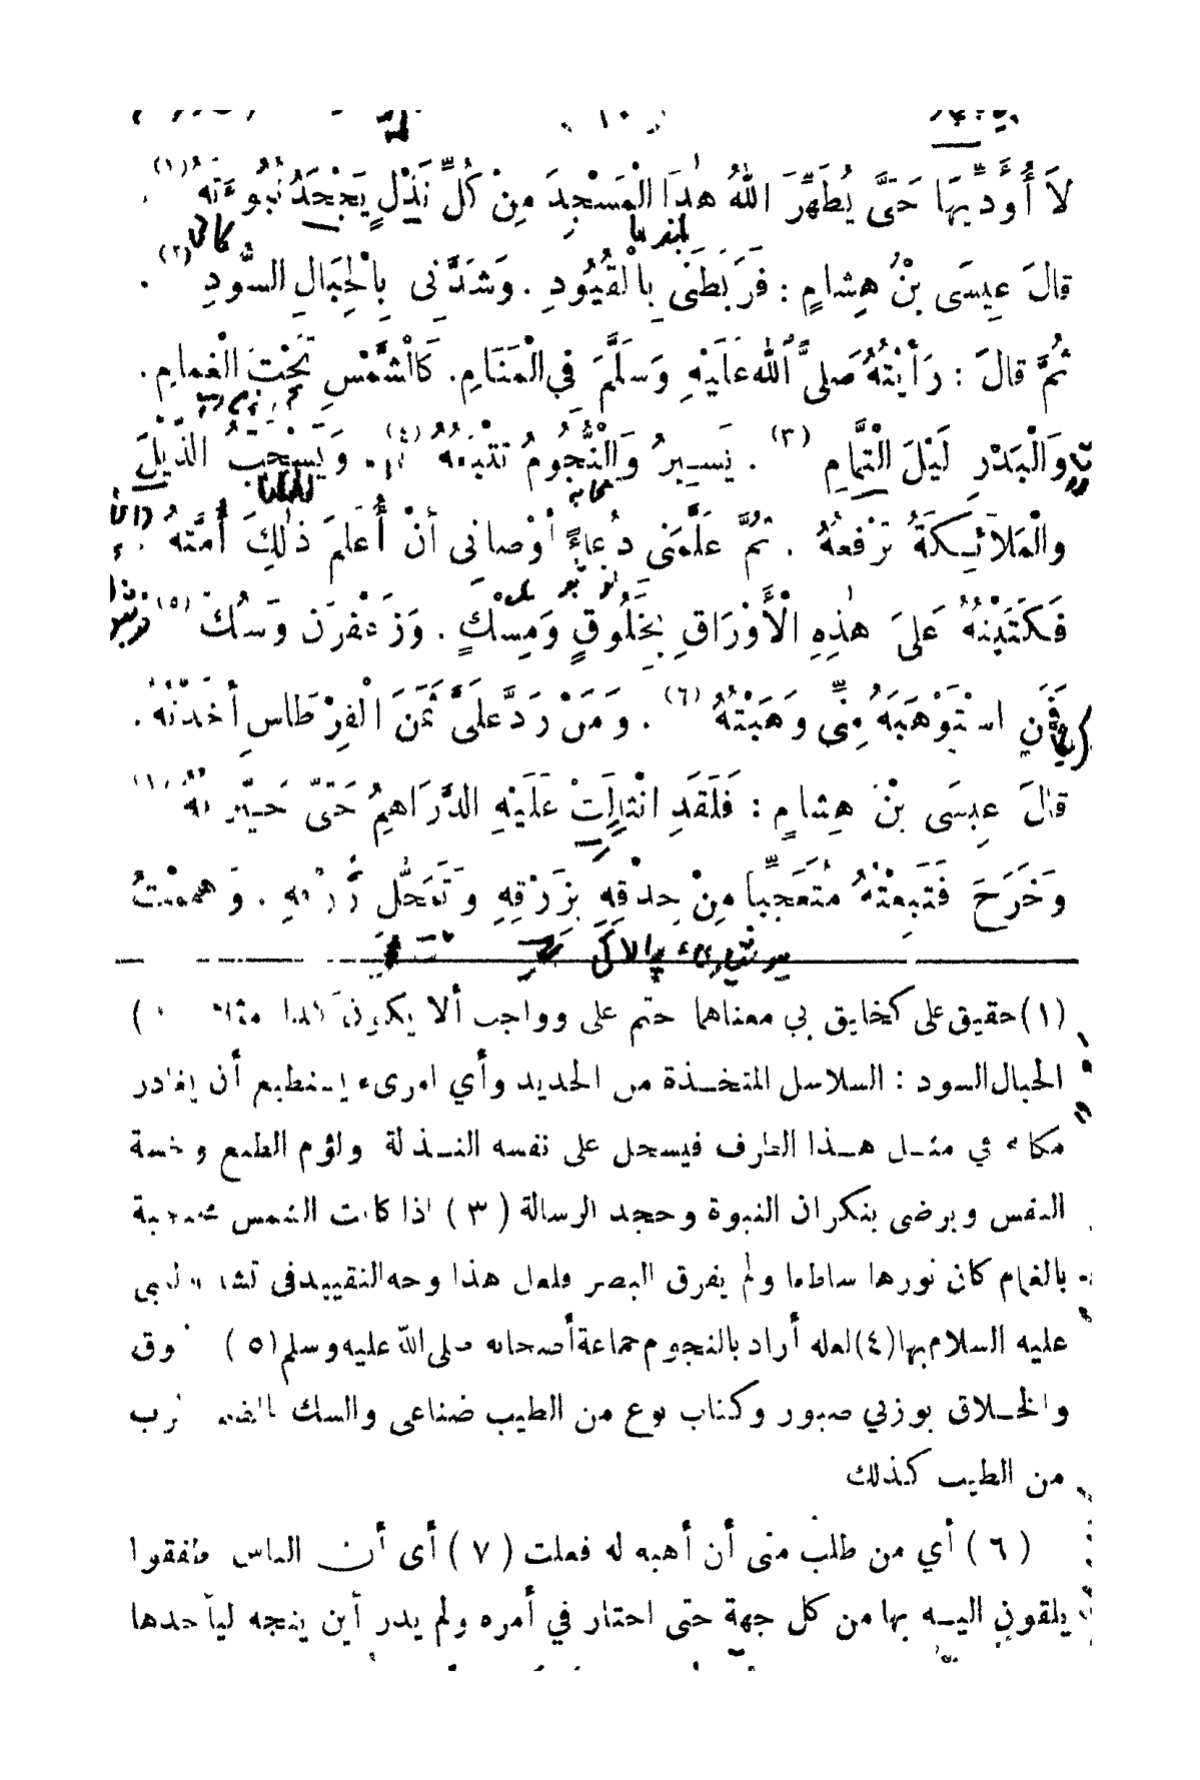 لاَ أُؤَدِّيهَا حَتَّى يُطَهِّرَ اللهُ هٰذَا الْمَسْجِدَ مِنْ كُلِّ نَذْلٍ يَجْحَدُ نُبُوءَتَهُ (١) .
قالَ عِيسَى بْنُ هِشامٍ : فَرَبَطَنِى بِالْقُيُودِ . وَشَدَّنِى بِالْحِبَالِ السُّودِ (٢) .
ثُمَّ قالَ : رَأَيْتُهُ صَلىَّ اللهُ عَلَيْهِ وَسَلَّمَ فِي الْمَنَامِ. كَالشَّمْسِ تَحْتَ الْغَمامِ.
وَالْبَدْرِ لَيْلَ التَّمامِ (٣) . يَسِيرُ وَالنُّجُومُ تَتْبَعُهُ (٤) . وَيَسْحَبُ الذَّيْلَ
وَالْمَلاَئِكَةُ تَرْفَعُهُ . ثُمَّ عَلَّمَنِى دُعاءً أَوْصانِى أَنْ أُعَلِّمَ ذٰلِكَ أُمَّتَهُ .
فَكَتَبْتُهُ عَلىَ هٰذِهِ الْأَوْرَاقِ بِخَلُوقٍ وَمِسْكٍ . وَزَعْفَرَنٍ وَسُكٍّ (٥)
فَمَنِ اسْتَوْهَبَهُ مِنِّى وَهَبْتُهُ (٦) . وَمَنْ رَدَّ عَلَىَّ ثَمَنَ الْقِرْطَاسِ أَخَذْتُهُ .
قالَ عِيسَى بْنُ هِشامٍ : فَلَقَدِ انْثالَتْ عَلَيْهِ الدَّرَاهِمُ حَتَّى حَيَّرَتْهُ
وَخَرَجَ فَتَبِعْتُهُ مُتَعَجِّبًا مِنْ حِذْقِهِ بِزَرْقِهِ وَتَمَحُّلِ رِزْقِهِ . وَهَمَمْتُ
(١) حقيق على كخليق بي معناهما حتم على وواجب ألا يكون
الحبال السود : السلاسل المتخذة من الحديد وأي امرىء يستطيع أن يغادر
مكانه في مثل هذا الظرف فيسجل على نفسه النذلة ولؤم الطبع وخسة
النفس ويرضى بنكران النبوة وجحد الرسالة (٣) اذا كانت الشمس محجبة
بالغمام كان نورها ساطعا ولم يفرق البصر فلعل هذا وجه التقييد فى تشبيه النبي
عليه السلام بها (٤) لعله أراد بالنجوم جماعة أصحابه صلى الله عليه وسلم (٥)
والخلاق بوزني صبور وكتاب نوع من الطيب ضناعى والسك بالضم ضرب
من الطيب كذلك
(٦) أي من طلب منى أن أهبه له فعلت (٧) أى أن الناس طفقوا
يلقون اليه بها من كل جهة حتى احتار في أمره ولم يدر أين يتجه ليأخذها